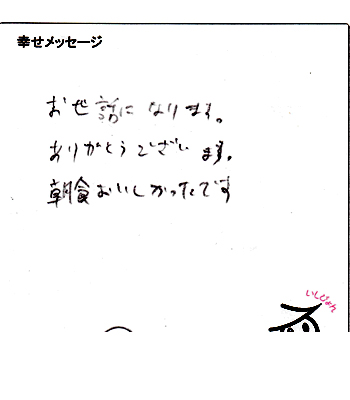 幸せメッセージ
お世話になります。
ありがとうございます。
朝食おいしかったです